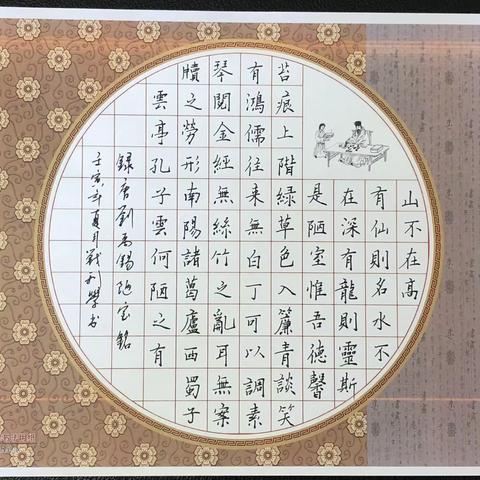 山不在高
有仙則名水不
在深有龍則靈斯
是陋室惟吾德馨
苔痕上階綠草色入簾青談笑
有鴻儒往来無白丁可以調素
琴閱金經無絲竹之亂耳無案
牘之勞形南陽諸葛廬西蜀子
雲亭孔子雲何陋之有
錄唐劉禹錫陋室銘
壬寅年夏月戰利學书